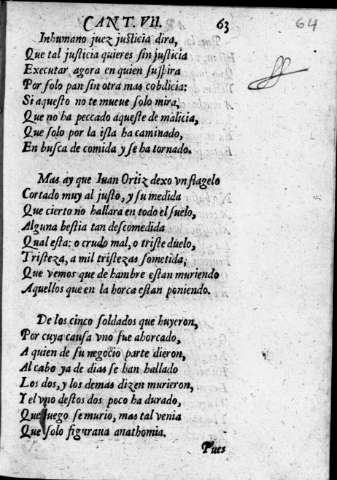 CANT. VII. 63 64
Inhumano juez justicia dira,
Que tal justicia quieres sin justicia
Executar agora en quien suspira
Por solo pan sin otra mas cobdicia:
Si aquesto no te mueve solo mira,
Que no ha peccado aqueste de malicia,
Que solo por la isla ha caminado,
En busca de comida y se ha tornado.
Mas ay que Iuan Ortiz dexo vn flagelo
Cortado muy al justo, y su medida
Que cierto no hallara en todo el suelo,
Alguna bestia tan descomedida
Qual esta: o crudo mal, o triste duelo,
Tristeza, a mil tristezas sometida;
Que vemos que de hambre estan muriendo
Aquellos que en la horca estan poniendo.
De los cinco soldados que huyeron,
Por cuya causa vno fue ahorcado,
A quien de su negocio parte dieron,
Al cabo ya de dias se han hallado
Los dos, y los demas dizen murieron,
Y el vno destos dos poco ha durado,
Que luego se murio, mas tal venia
Que solo figuraua anathomia.
Pues